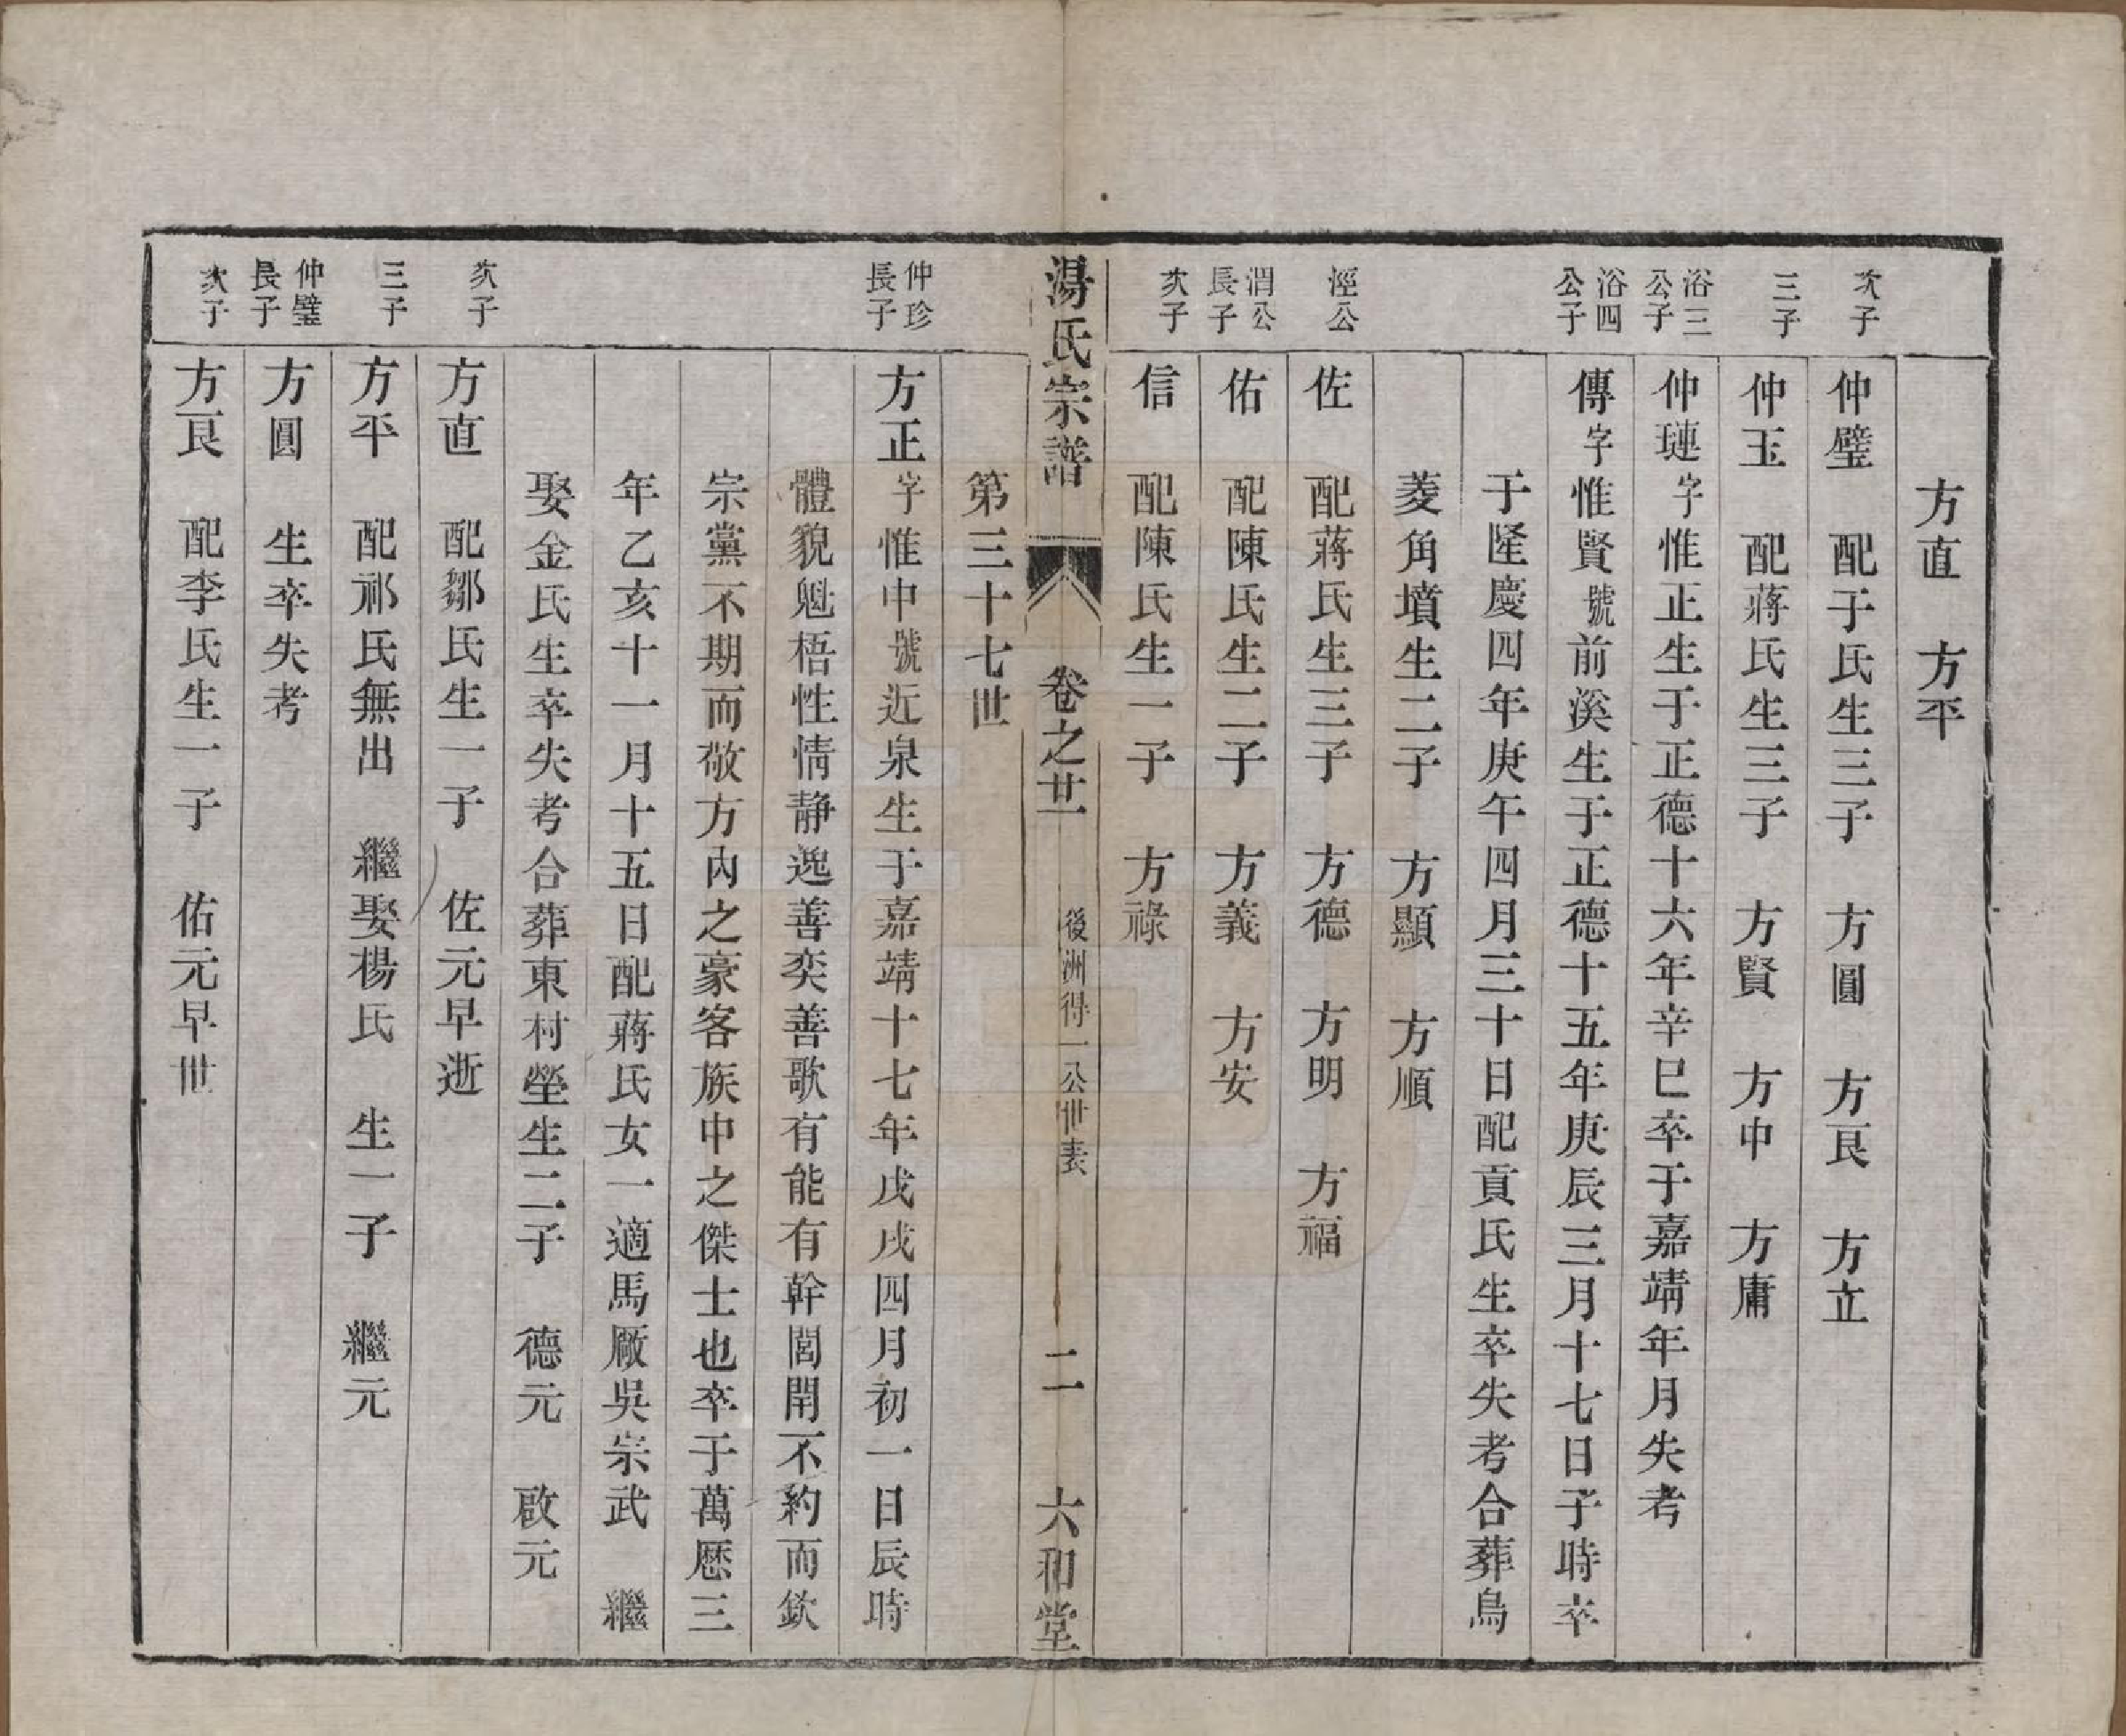 方直　方平
次子　仲璧　配于氏生三子　方圓　方艮　方立
三子　仲玉　配蔣氏生三子　方賢　方中　方庸
浴三公子　仲璉字惟正生于正德十六年辛巳卒于嘉靖年月失考
浴四公子　傳字惟賢號前溪生于正德十五年庚辰三月十七日子時卒
于隆慶四年庚午四月三十日配貢氏生卒失考合葬烏
菱角墳生二子　方顯　方順
涇公　佐　配蔣氏生三子　方德　方明　方福
渭公長子　佑　配陳氏生二子　方義　方安
次子　信　配陳氏生一子　方祿
湯氏宗譜　卷之廿一　後洲得一公世表　二　六和堂
第三十七世
仲珍長子　方正字惟中號近泉生于嘉靖十七年戊戌四月初一日辰時
體貌魁梧性情靜逸善奕善歌有能有幹閭閈不約而欽
宗黨不期而敬方內之豪客族中之傑士也卒于萬歷三
年乙亥十一月十五日配蔣氏女一適馬厰吳宗武　繼
娶金氏生卒失考合葬東村塋生二子　德元　啟元
次子　方直　配鄒氏生一子　佐元早逝
三子　方平　配祁氏無出　繼娶楊氏　生一子　繼元
仲璧長子　方圓　生卒失考
次子　方艮　配李氏生一子　佑元早世